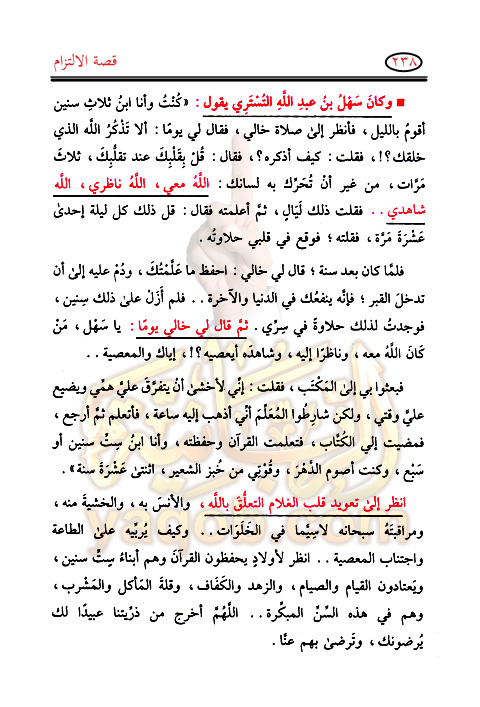 ٢٣٨
قصة الالتزام
■ وكانَ سَهْلُ بنُ عبدِ اللَّهِ التُسْتَرِي يقول : «كُنْتُ وأنا ابنُ ثلاثِ سنين
أقومُ بالليل ، فأنظر إلىٰ صلاة خالي ، فقال لي يومًا : ألا تَذْكُرُ اللَّه الذي
خلقك ؟! ، فقلت : كيف أذكره ؟ ، فقال : قُلْ بِقَلْبِكَ عند تقلُّبِكَ ، ثلاثَ
مَرَّات ، من غير أنْ تُحَرِّك به لسانك : اللَّهُ معي ، اللَّهُ ناظري ، اللَّه
شاهدي . . فقلت ذلك لَيَالٍ ، ثمَّ أعلمته فقال : قل ذلك كل ليلة إحدىٰ
عَشْرَةَ مَرَّة ، فقلته ؛ فوقع في قلبي حلاوتُه .
فلمَّا كان بعد سنة ؛ قال لي خالي : احفظ ما عَلَّمْتُكَ ، ودُمْ عليه إلىٰ أن
تدخلَ القبر ؛ فإنَّه ينفعُك في الدنيا والآخرة . . فلم أَزَلْ علىٰ ذلك سِنين ،
فوجدتُ لذلك حلاوةً في سِرِّي . ثمَّ قال لي خالي يومًا : يا سَهْل ، مَنْ
كَانَ اللَّهُ معه ، وناظرًا إليه ، وشاهدَه أيعصيه ؟! ، إياك والمعصية . .
فبعثوا بي إلىٰ المَكْتَب ، فقلت : إنِّي لأخشىٰ أنْ يتفرَّقَ عليَّ همِّي ويضيع
عليَّ وقتي ، ولكن شارِطُوا المُعَلِّمَ أنِّي أذهب إليه ساعة ، فأتعلم ثمَّ أرجع ،
فمضيت إلي الكُتَّاب ، فتعلمت القرآن وحفظته ، وأنا ابنُ سِتِّ سنين أو
سَبْع ، وكنت أصوم الدَّهْرَ ، وقُوْتِي من خُبز الشعير ، اثنتىٰ عَشْرَةَ سنة» .
انظر إلىٰ تعويد قلب الغلام التعلُّقَ باللَّه ، والأنسَ به ، والخشيةَ منه ،
ومراقبتَهُ سبحانه لاسِيَّما في الخَلَوَات . . وكيف يُربِّيه علىٰ الطاعة
واجتناب المعصية . . انظر لأولادٍ يحفظون القرآنَ وهم أبناءُ سِتِّ سنين ،
ويَعتادون القيام والصيام ، والزهد والكَفَاف ، وقلةَ المأكل والمَشْرب ،
وهم في هذه السِّنِّ المبكِّرة . . اللَّهُمَّ أخرج من ذرِّيتنا عبيدًا لك
يُرضونك ، وتَرضىٰ بهم عنَّا .